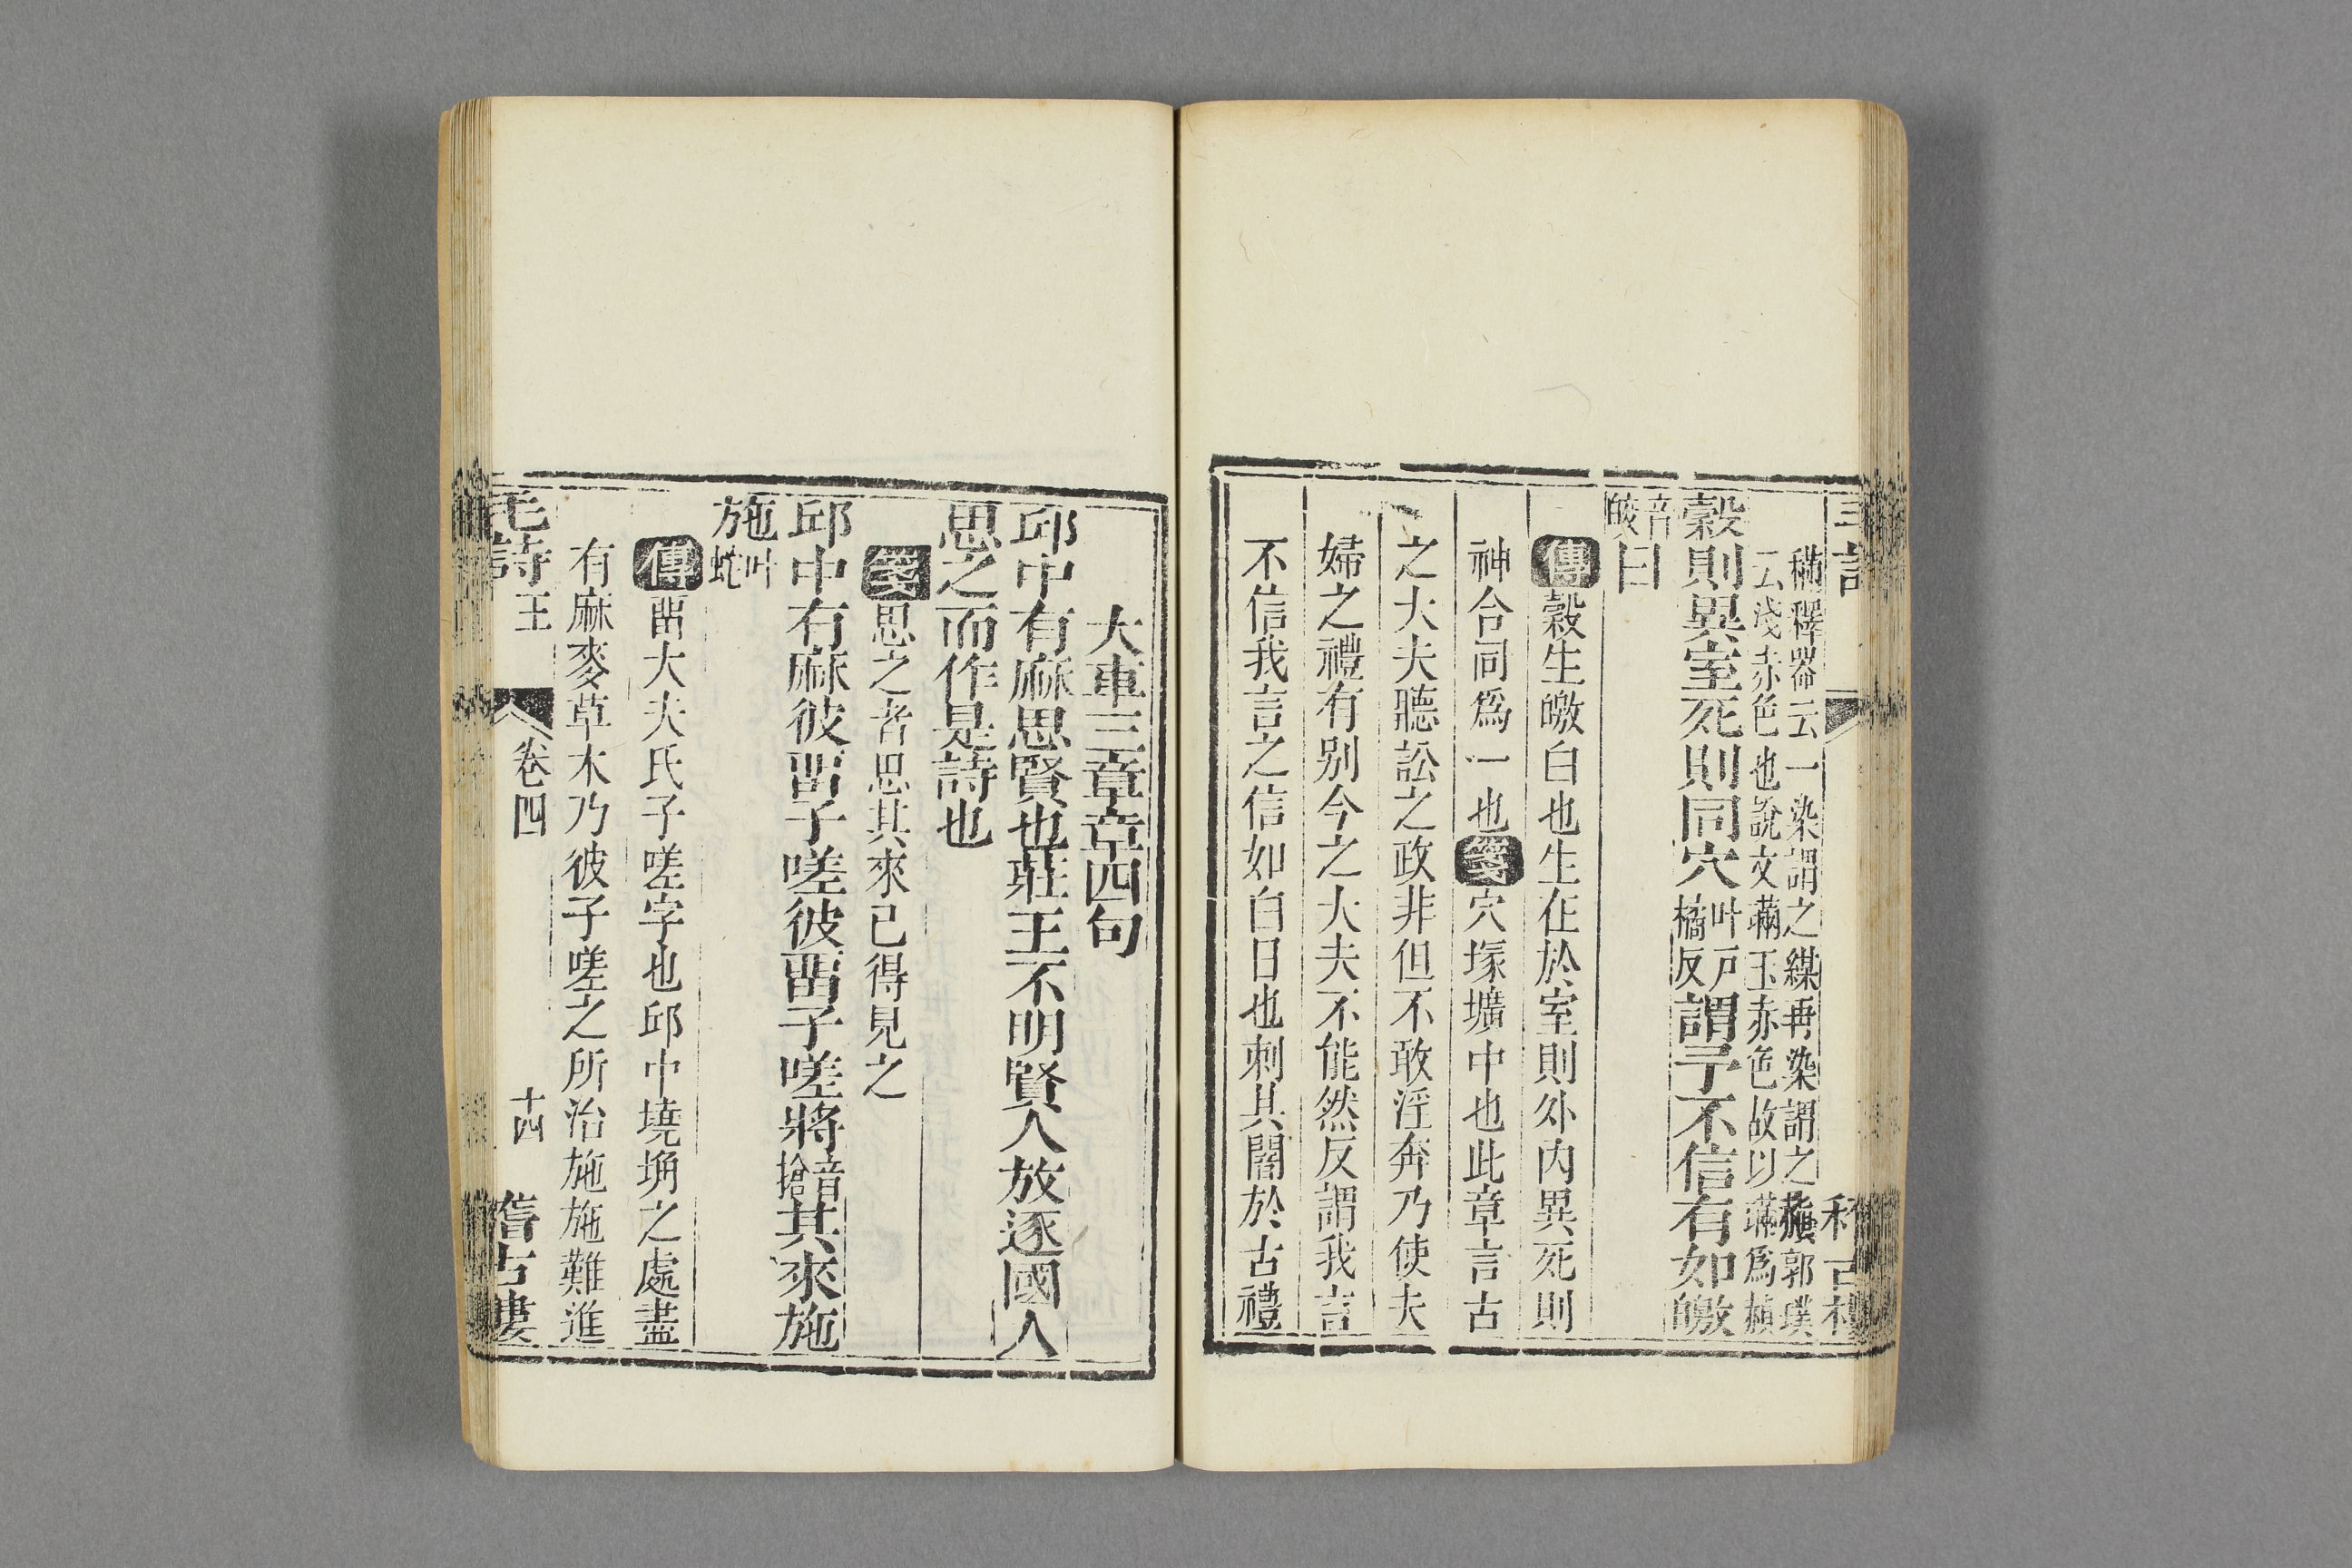 穪釋器云一染謂之縓再染謂之䞓郭璞
云淺赤色也說文璊玉赤色故以璊爲赬
穀則異室死則同穴叶戸橘反謂予不信有如皦
音皎日
傳穀生皦白也生在於室則外内異死則
神合同爲一也箋穴塚壙中也此章言古
之大夫聽訟之政非但不敢淫奔乃使夫
婦之禮有别今之大夫不能然反謂我言
不信我言之信如白日也刺其闇於古禮
大車三章章四句
邱中有麻思賢也莊王不明賢人放逐國人
思之而作是詩也
箋思之者思其來已得見之
邱中有麻彼留子嗟彼留子嗟將音搶其來施
施叶蛇
傳留大夫氏子嗟字也邱中墝埆之處盡
有麻麥草木乃彼子嗟之所治施施難進
毛詩 王 卷四 十四 稽古樓